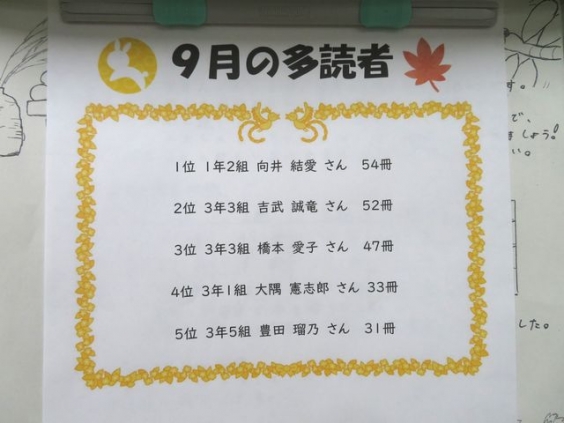 9月の多読者
1位 1年2組 向井 結愛 さん 54冊
2位 3年3組 吉武 誠竜 さん 52冊
3位 3年3組 橋本 愛子 さん 47冊
4位 3年1組 大隅 憲志郎 さん 33冊
5位 3年5組 豊田 瑠乃 さん 31冊
す。
で、
ましょう!
い。
した。